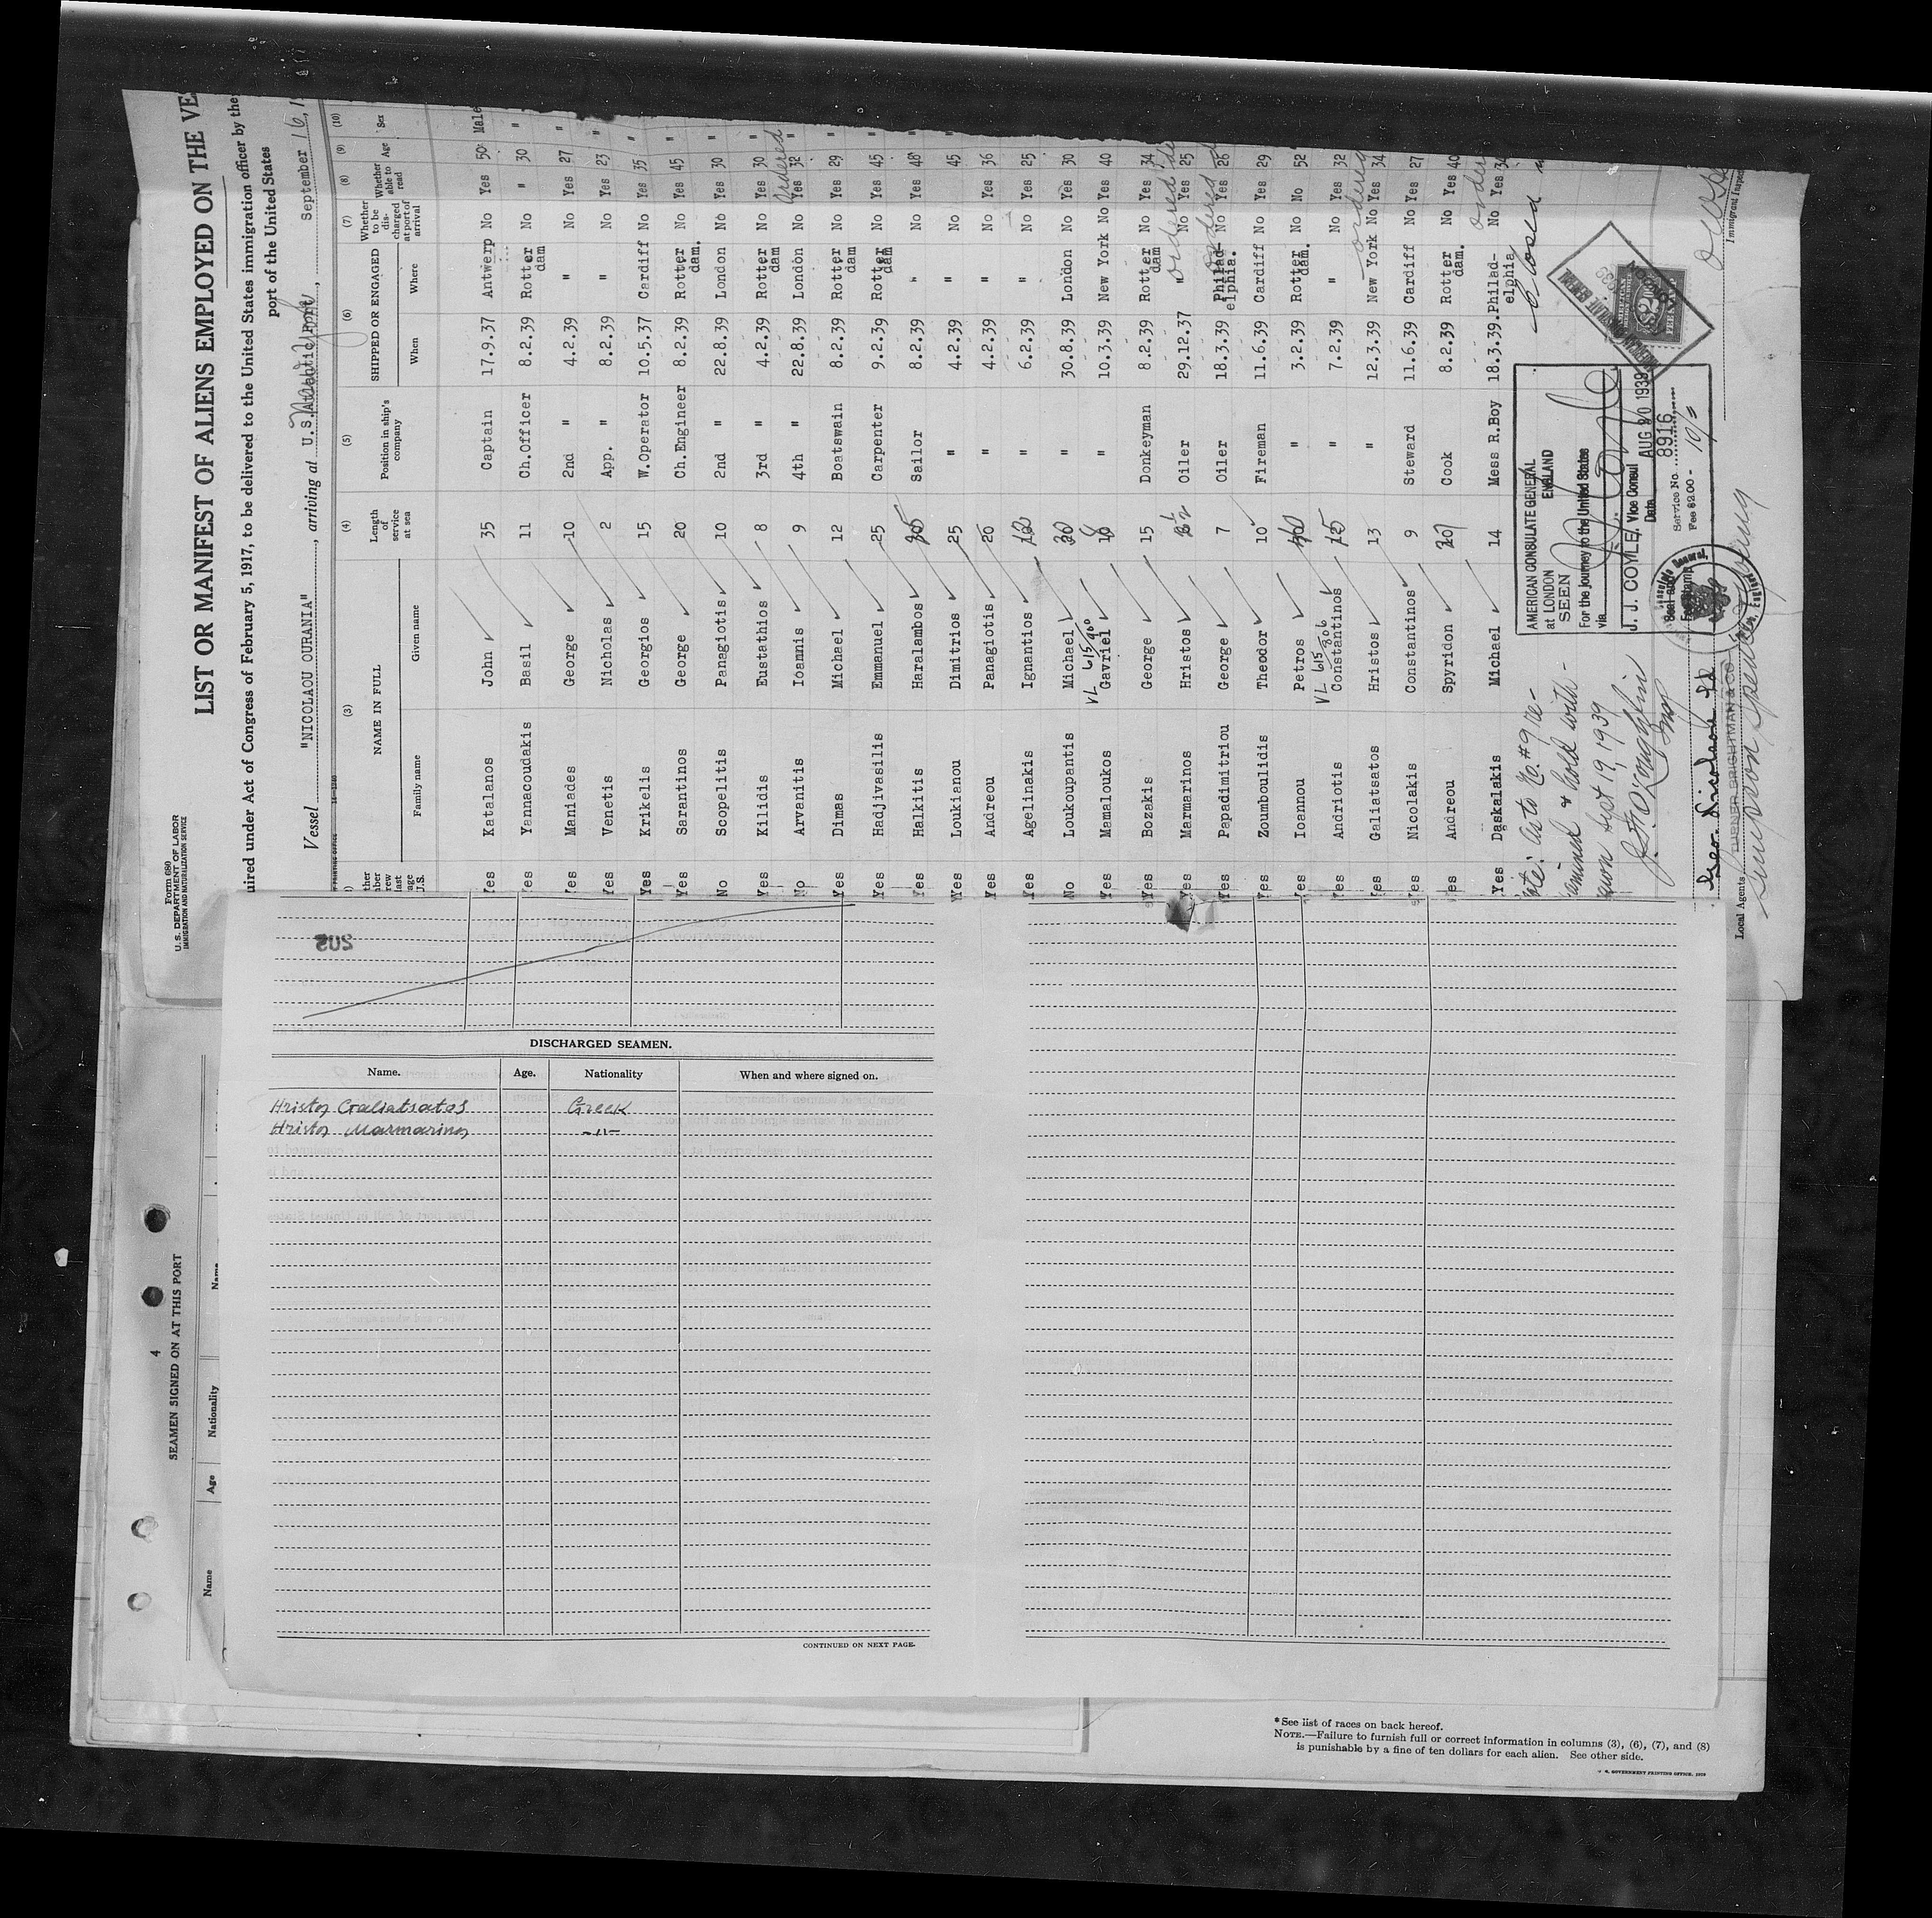 Form 680
U. S. DEPARTMENT OF LABOR
IMMIGRATION AND NATURALIZATION SERVICE
LIST OR MANIFEST OF ALIENS EMPLOYED ON THE VE
uired under Act of Congress of February 5, 1917, to be delivered to the United States immigration officer by the
port of the United States
Vessel "NICOLAOU OURANIA", arriving at U.S. Atlantic Port, September 16, 1
(3) (4) (5) (6) (7) (8) (9) (10)
NAME IN FULL
Family name Given name
Length of service at sea
Position in ship's company
SHIPPED OR ENGAGED
When Where
Whether to be discharged at port of arrival
Whether able to read
Age Sex
Yes Katalanos John 35 Captain 17.9.37 Antwerp No Yes 50 Male
Yes Yannacoudakis Basil 11 Ch.Officer 8.2.39 Rotter dam No " 30 "
Yes Maniades George 10 2nd " 4.2.39 " No Yes 27 "
Yes Venetis Nicholas 2 App. " 8.2.39 " No Yes 23 "
Yes Krikelis Georgios 15 W.Operator 10.5.37 Cardiff No Yes 35 "
Yes Sarantinos George 20 Ch.Engineer 8.2.39 Rotter dam. No Yes 45 "
No Scopelitis Panagiotis 10 2nd " 22.8.39 London No Yes 30 "
Yes Kilidis Eustathios 8 3rd " 4.2.39 Rotter dam No Yes 30 "
No Arvanitis Ioannis 9 4th " 22.8.39 London No Yes 32 "
Ordered
Yes Dimas Michael 12 Boatswain 8.2.39 Rotter dam No Yes 29 "
Yes Hadjivasilis Emmanuel 25 Carpenter 9.2.39 Rotter dam No Yes 45 "
Yes Halkitis Haralambos Sailor 8.2.39 " No Yes 46 "
Yes Loukianou Dimitrios 25 " 4.2.39 " No Yes 45 "
Yes Andreou Panagiotis 20 " 4.2.39 " No Yes 36
Yes Agelinakis Ignantios " 6.2.39 " No Yes 25
No Loukoupantis Michael " 30.8.39 London No Yes 30
VL 615/900
Yes Mamaloukos Gavriel " 10.3.39 New York No Yes 40
Yes Bozakis George 15 Donkeyman 8.2.39 Rotter dam No Yes 34
Yes Marmarinos Hristos Oiler 29.12.37 " No Yes 25
ordered
Yes Papadimitriou George 7 Oiler 18.3.39 Philad- elphia. No Yes 26
ordered
Yes Zoumboulidis Theodor 10 Fireman 11.6.39 Cardiff No Yes 29
Yes Ioannou Petros " 3.2.39 Rotter dam. No No 52
VL 615/306
Yes Andriotis Constantinos 15 " 7.2.39 " No Yes 32
Yes Galiatsatos Hristos 13 " 12.3.39 New York No Yes 34
ordered
Yes Nicolakis Constantinos 9 Steward 11.6.39 Cardiff No Yes 27
Yes Andreou Spyridon Cook 8.2.39 Rotter dam. No Yes 40
Yes Daskalakis Michael 14 Mess R.Boy 18.3.39. Philad- elphia No Yes 34
Closed
AMERICAN CONSULATE GENERAL
at LONDON ENGLAND
SEEN
For the Journey to the United States
via
J. J. COYLE, Vice Consul
Date AUG 30 1939
Service No. 8916
Fee $2.00 - 10/=
TURNER BRIGHTMAN & CO
Local Agents
Simpson Spence & Young
Immigrant Inspec
205
DISCHARGED SEAMEN.
Name. Age. Nationality When and where signed on.
Hristos Galiatsatos Greek
Hristos Marmarinos -"-
CONTINUED ON NEXT PAGE.
4
SEAMEN SIGNED ON AT THIS PORT
Name Age Nationality Name
*See list of races on back hereof.
NOTE.—Failure to furnish full or correct information in columns (3), (6), (7), and (8)
is punishable by a fine of ten dollars for each alien. See other side.
U. S. GOVERNMENT PRINTING OFFICE